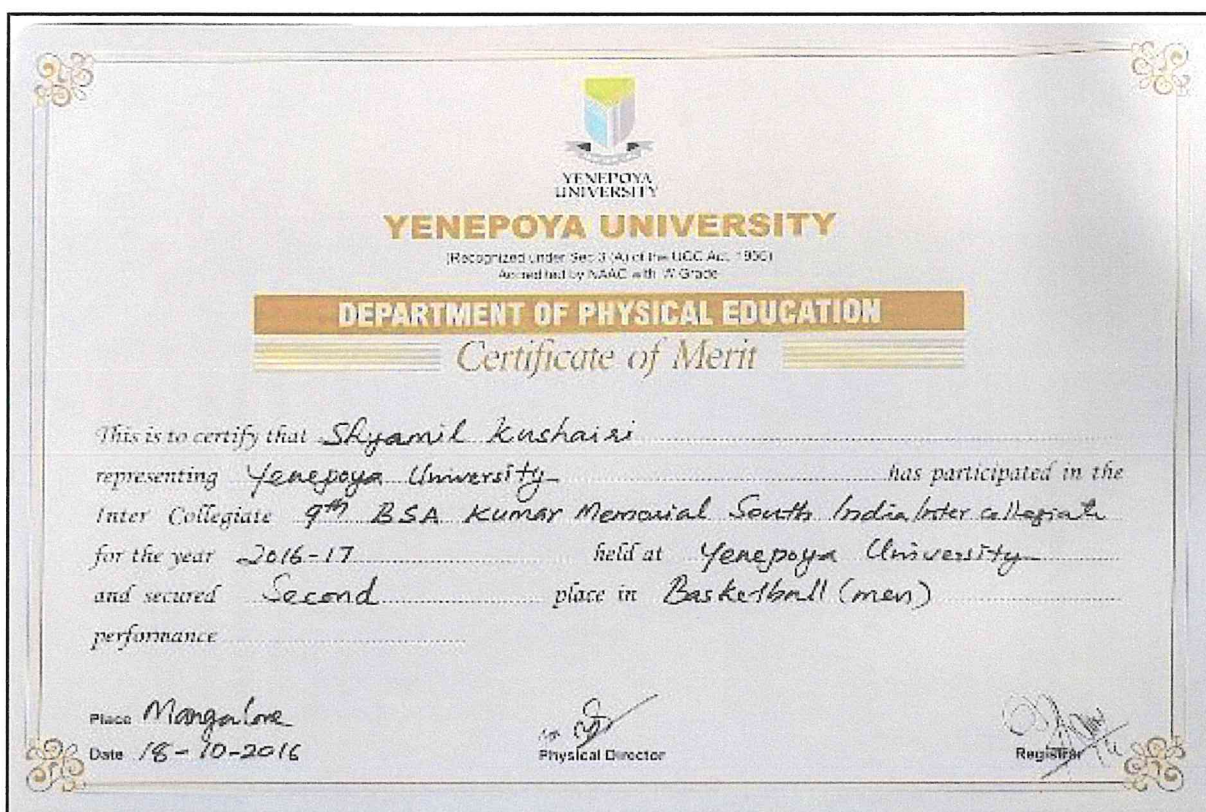 YENEPOYA
UNIVERSITY
YENEPOYA UNIVERSITY
(Recognized under Sec 3 (A) of the UGC Act, 1956)
Accredited by NAAC with 'A' Grade
DEPARTMENT OF PHYSICAL EDUCATION
Certificate of Merit
This is to certify that Shyamil Kushairi
representing Yenepoya University has participated in the
Inter Collegiate 9th BSA Kumar Memorial South India Inter collegiate
for the year 2016-17 held at Yenepoya University
and secured Second place in Basketball (men)
performance
Place Mangalore
Date 18-10-2016
Physical Director
Registrar